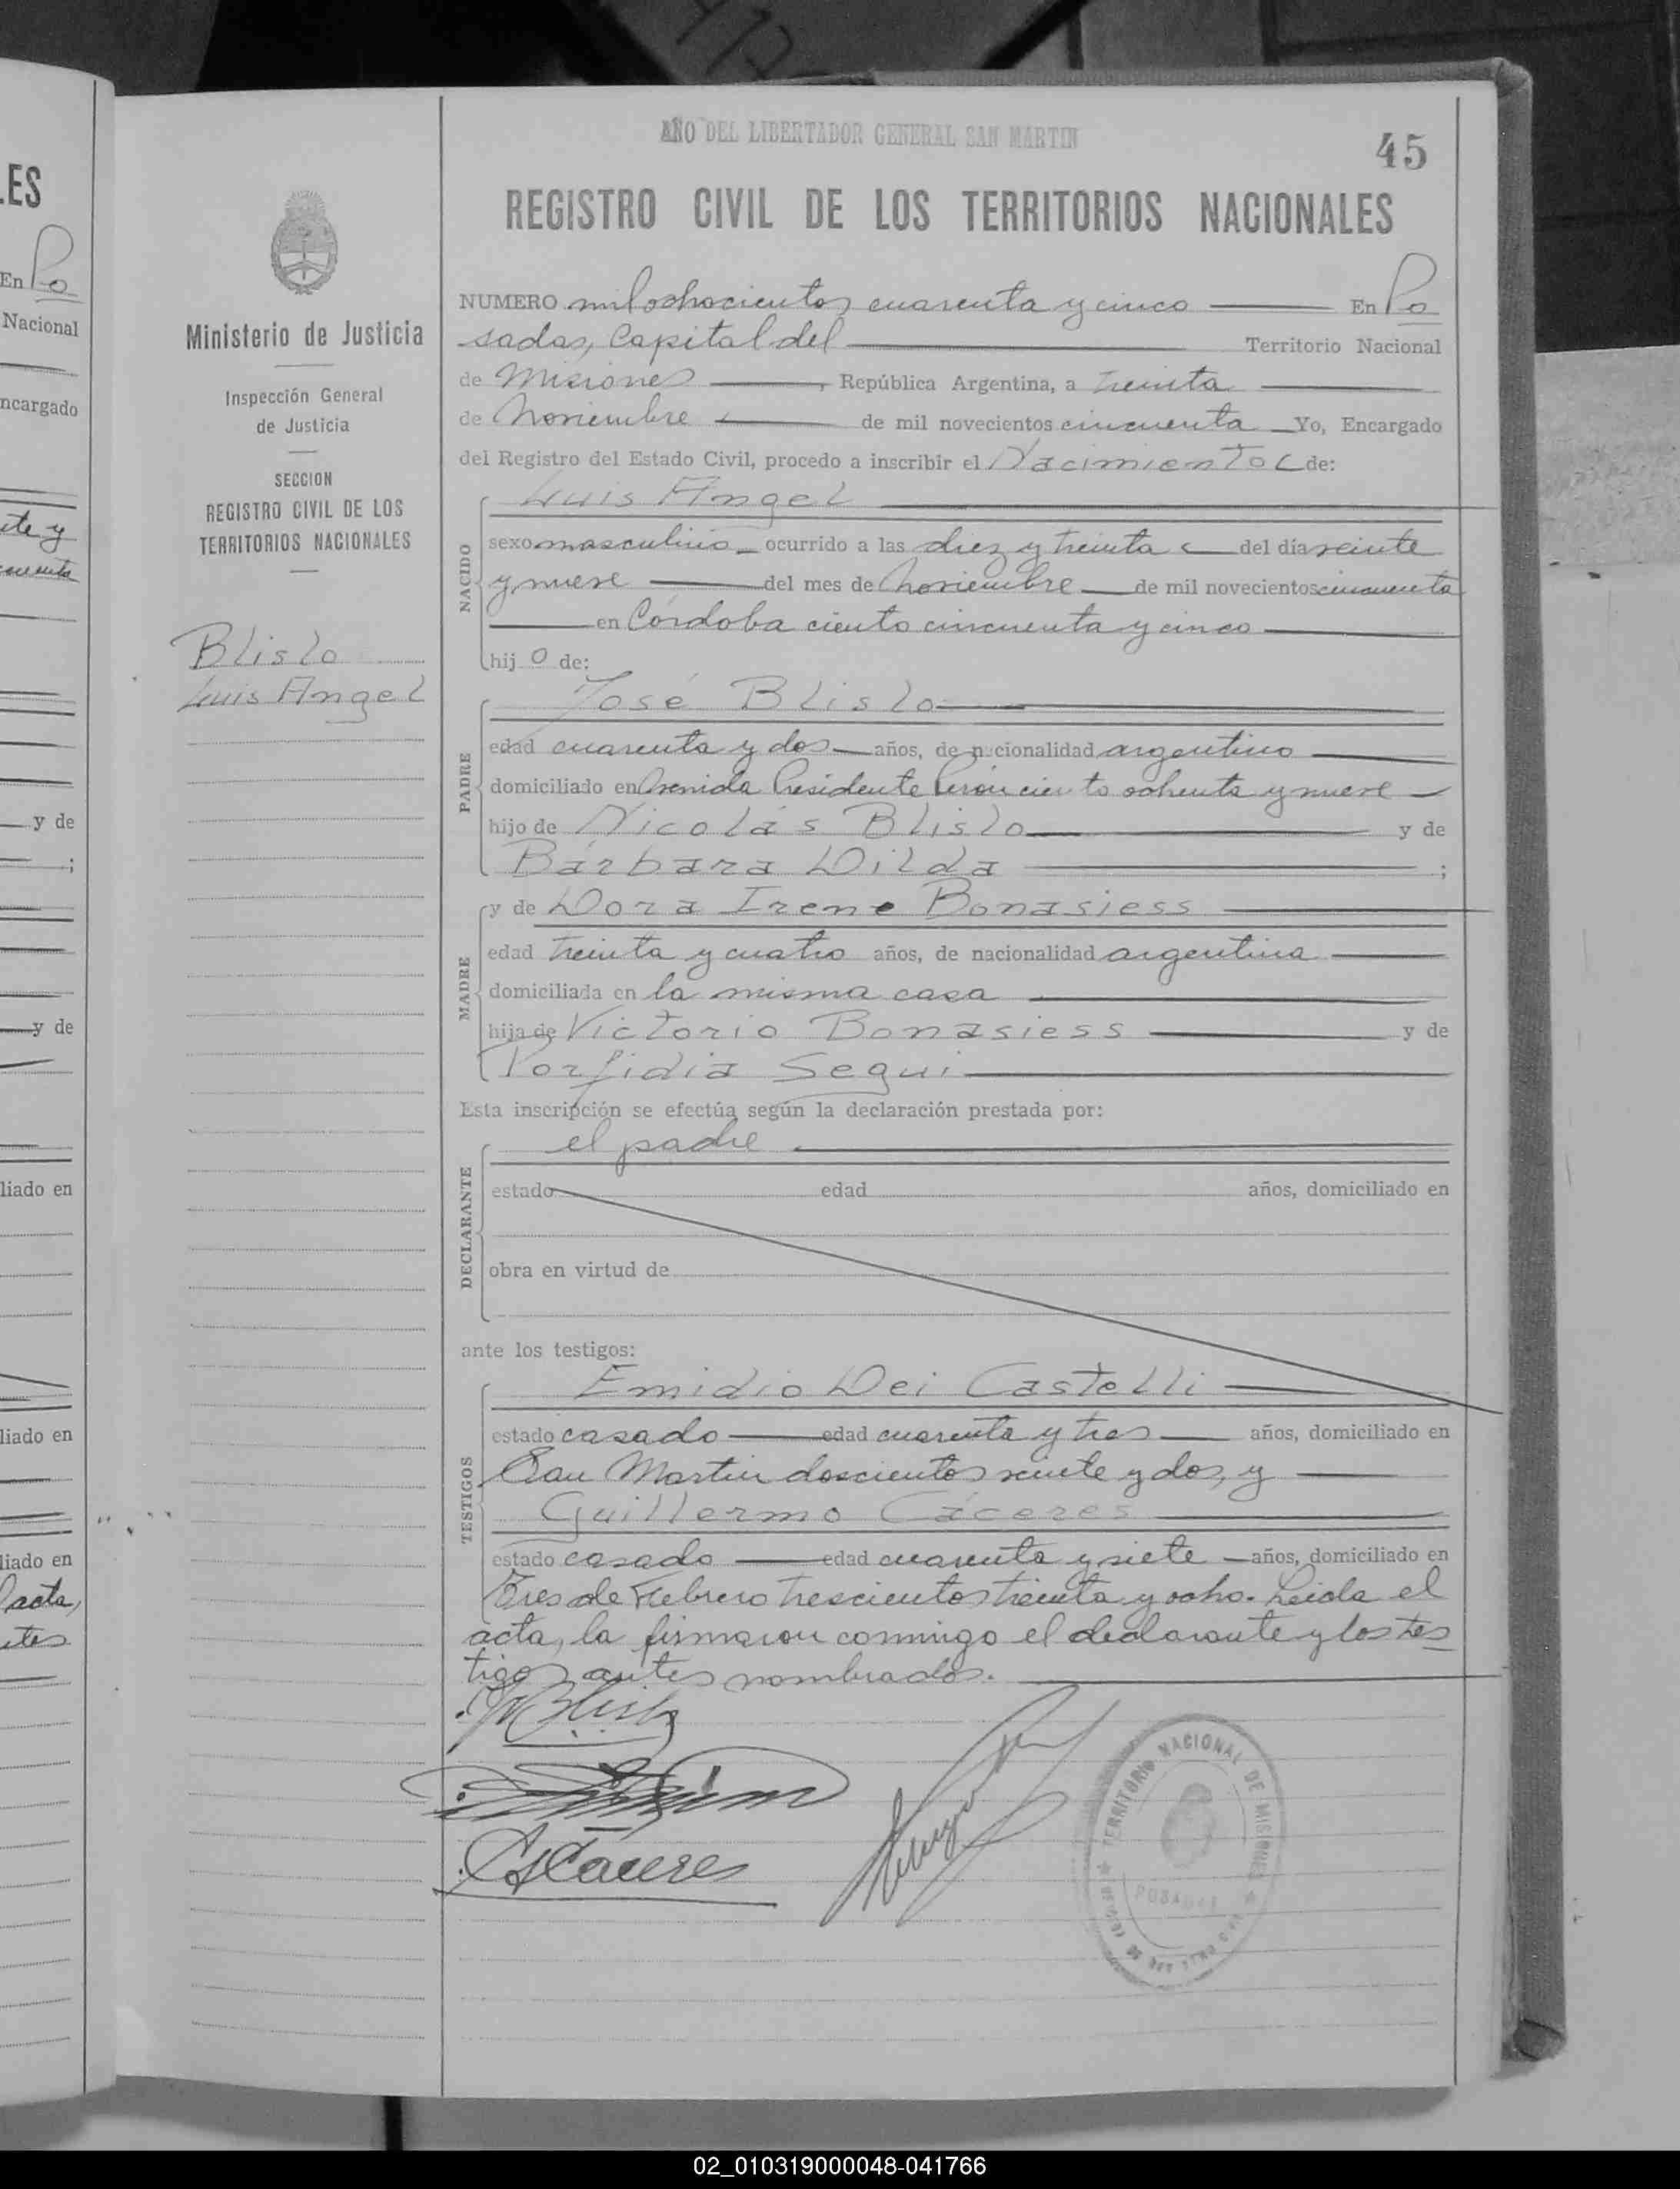 AÑO DEL LIBERTADOR GENERAL SAN MARTIN
45
REGISTRO CIVIL DE LOS TERRITORIOS NACIONALES
Ministerio de Justicia
Inspección General
de Justicia
SECCION
REGISTRO CIVIL DE LOS
TERRITORIOS NACIONALES
Blislo
Luis Angel
NUMERO mil ochocientos cuarenta y cinco En Po
sadas, Capital del Territorio Nacional
de Misiones, República Argentina, a treinta
de Noviembre de mil novecientos cincuenta Yo, Encargado
del Registro del Estado Civil, procedo a inscribir el Nacimiento de:
NACIDO
Luis Angel
sexo masculino ocurrido a las diez y treinta del día veinte
y nueve del mes de Noviembre de mil novecientos cincuenta
en Córdoba ciento cincuenta y cinco
hijo de:
PADRE
José Blislo
edad cuarenta y dos años, de nacionalidad argentino
domiciliado en Avenida Presidente Perón ciento ochenta y nueve
hijo de Nicolás Blislo y de
Bárbara Dilda ;
MADRE
y de Dora Irene Bonasiess
edad treinta y cuatro años, de nacionalidad argentina
domiciliada en la misma casa
hija de Victorio Bonasiess y de
Porfidia Segui
Esta inscripción se efectúa según la declaración prestada por:
DECLARANTE
el padre
estado edad años, domiciliado en
obra en virtud de
ante los testigos:
TESTIGOS
Emidio Dei Castelli
estado casado edad cuarenta y tres años, domiciliado en
San Martin doscientos veinte y dos, y
Guillermo Cáceres
estado casado edad cuarenta y siete años, domiciliado en
Tres de Febrero trescientos treinta y ocho. Leída el
acta, la firmaron conmigo el declarante y los tes
tigos antes nombrados.
Blislo
Cáceres
TERRITORIO NACIONAL DE MISIONES
POSADAS
LES
En Po
Nacional
ncargado
y de
;
y de
liado en
liado en
liado en
acta,
02_010319000048-041766